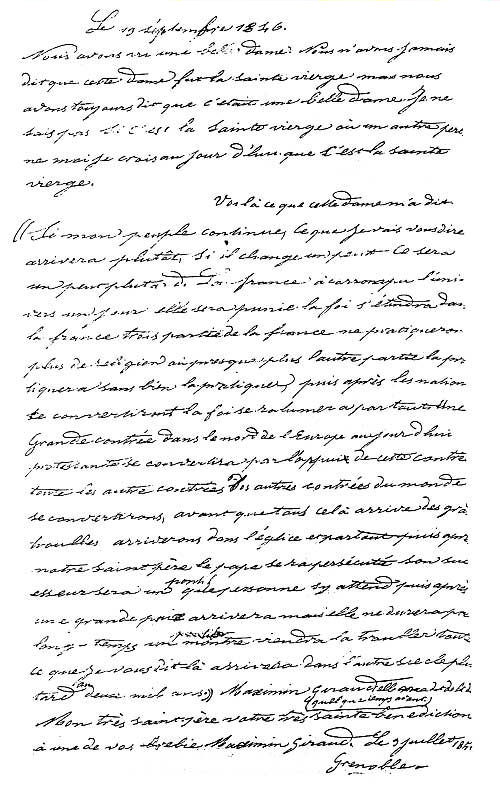 Le 19 septembre 1846.
Nous avons vu une belle dame Nous n'avons jamais
dit que cette dame fut la sainte vierge mas nous
avons toujours dit que c'était une belle dame. Je ne
sais pas si c'est la sainte vierge ou un autre per
ne moi je crois au jour d'hui que c'est la sainte
vierge.
Voilà ce que cette dame m'a dit
((Si mon peuple continue, ce que je vais vous dire
arrivera plutôt, si il change un peut ce sera
un peu plutard. La france à corrompu l'uni
vers un jour elle sera punie la foi s'éteindra dan
la france trois partie de la france ne pratiqueron
plus de religion ou presque plus l'autre partie la pra
tiquera sans bien la pratiquer, puis après les nation
se convertiront la foi se ralumera partout Une
Grande contrée dans le nord de l'Europe aujourd'hui
protestante se convertira par l'appuit de cette contré
toute les autre contrées les autres contrées du monde
se convertirons, avant que tous cela arrive des grà
troubles arriverons dans l'église et partout puis apré
notre saint père le pape sera persécuté son suc
esseur sera un ponti que personne sy attend puis après
une grande paix arrivera mais elle ne durera pa
long-temps un monstre viendra la troubler tout
ce que je vous dit là arrivera dans l'autre siecle plu
tard deux mil ans)) Maximin Giraud elle ma dit de le di
(quelque temps avant)
Mon très saint père votre très sainte benediction
à une de vos brebie Maximin Giraud. Le 3 juillet 1851
Grenoble